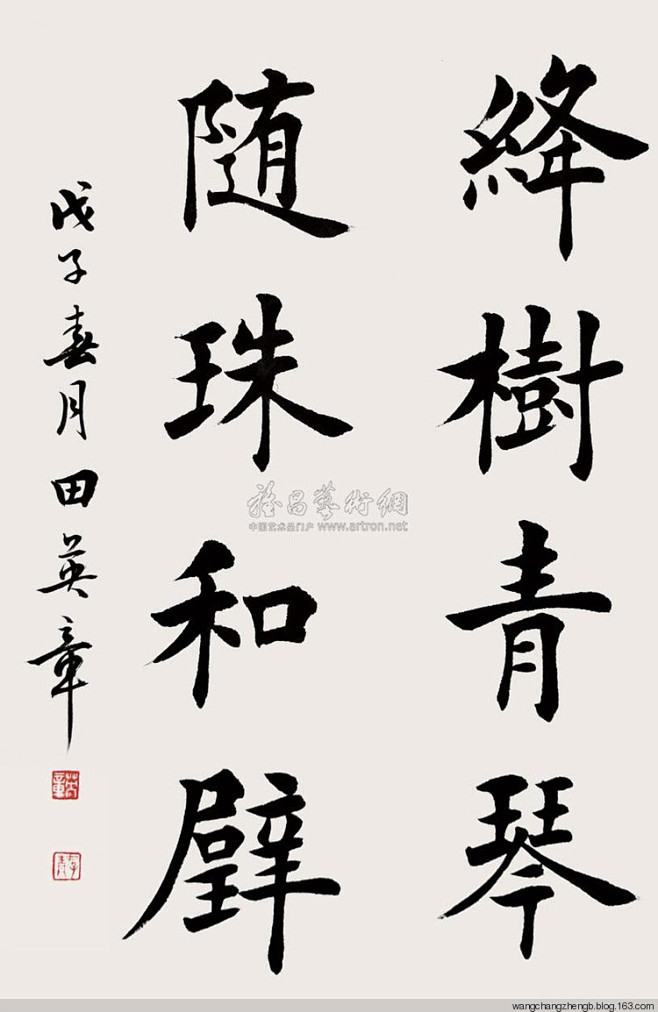 絳樹青琴
随珠和璧
戊子春月田英章
雅昌藝術網
中国艺术品门户 www.artron.net
wangchangzhengb.blog.163.com